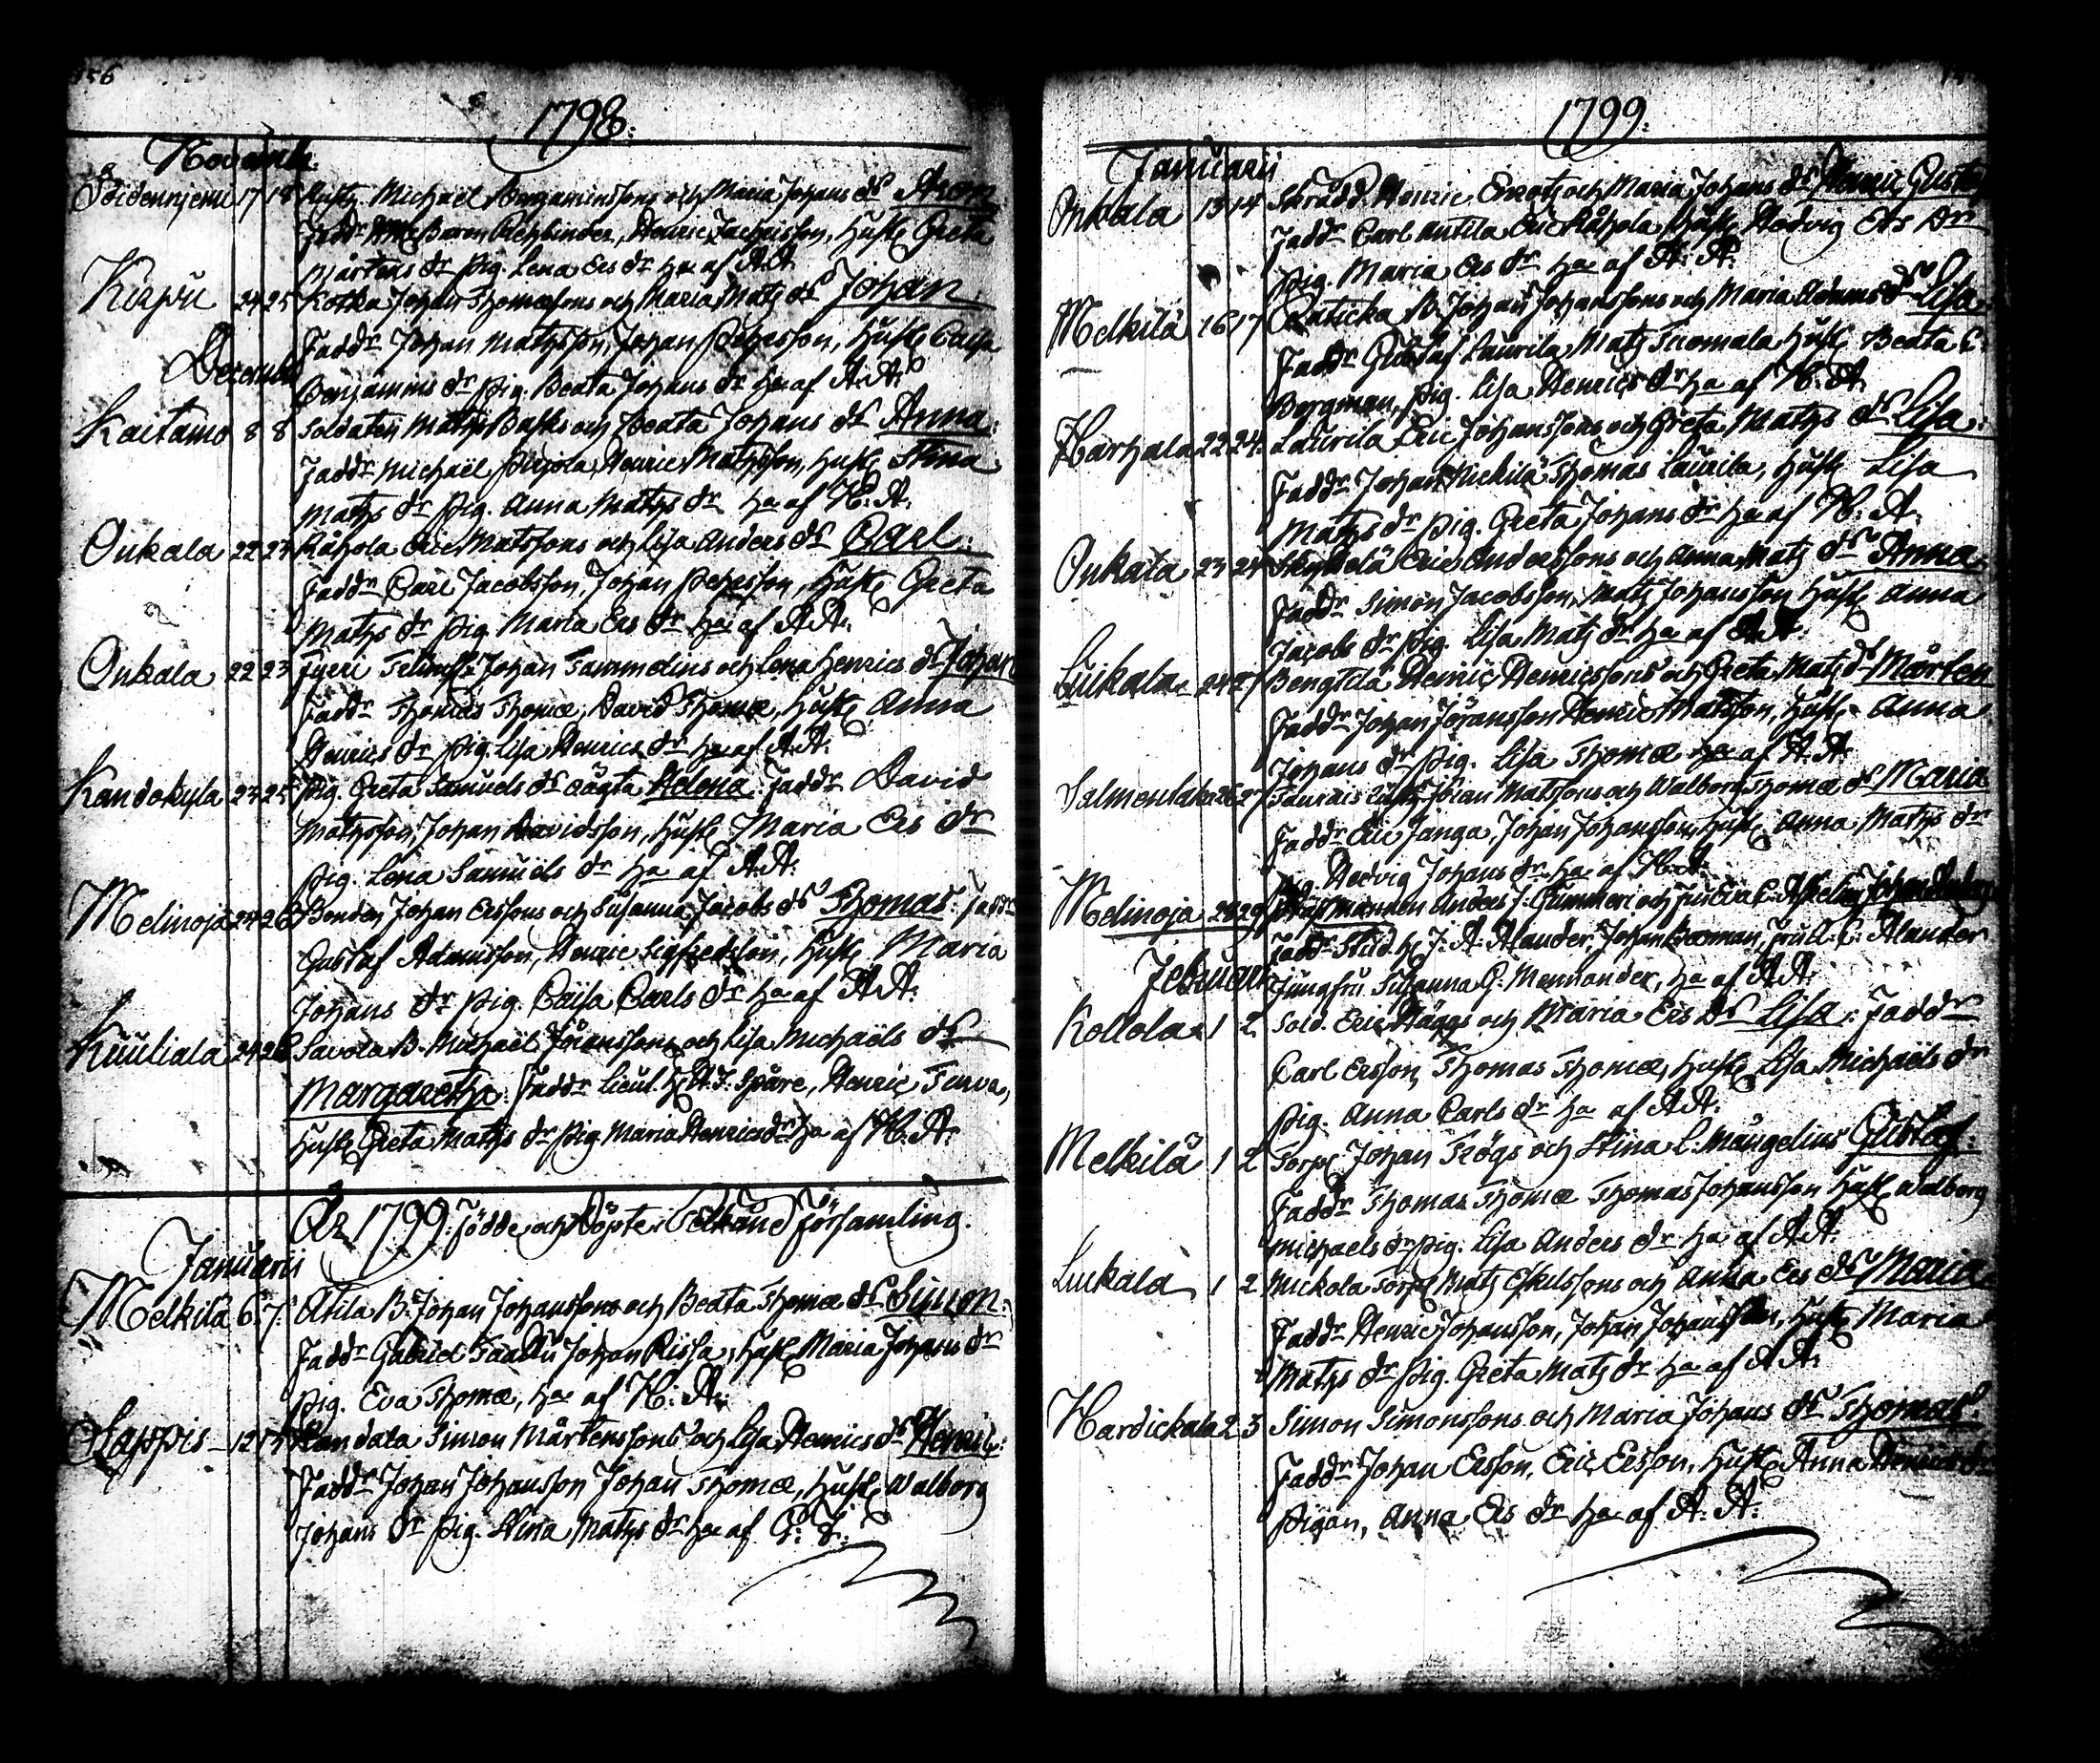 156
1798:
Novemb:
17 18 Michaël Benjaminssons och Maria Johans dr Aron
Faddr Baron Rehbinder, Henric Zachrisson, Hust. Greta
Mårtens dr pig. Lena Ers dr ha af A.A.
Kirpu 24 25 Kotka Johan Thomæsons och Maria Mats dr Johan
Faddr Johan Mathsson, Johan Pehrsson, Hust. Caisa
Decemb
Benjamins dr pig. Beata Johans dr ha af A.A.
Kaitamo 8 8 Soldaten Maths Basks och Beata Johans dr Anna:
Faddr Michaël Pirjola, Henric Mathsson, Hust. Stina
Maths dr pig. Anna Maths dr ha af H. A.
Onkala 22 23 Råhola Eric Matssons och Lisa Anders dr Carl:
Faddr Carl Jacobsson, Johan Pehrsson, Hust. Greta
Maths dr pig. Maria Ers dr ha af A.A.
Onkala 22 23 Johan Tammelins och Lena Henrics dr Johan
Faddr Thomas Thomæ, David Thomæ, Hust. Anna
Henrics dr pig. Lisa Henrics dr ha af A.A.
Kandokyla 23 25 pig. Greta Samuels dr oägta Helena: Faddr David
Mathsson, Johan Davidsson, Hust. Maria Ers dr
pig. Lena Samuels dr ha af A.A.
Melinoja 24 26 Bonden Johan Erssons och Susanna Jacobs dr Thomas: Faddr
Gustaf Adamsson, Henric Sigfredsson, Hust. Maria
Johans dr pig. Caisa Carls dr ha af A.A.
Kuuliala 24 26 Savola B. Michaël Jöranssons och Lisa Michaëls dr
Margaretha: Faddr Lieut. H. Spåre, Henric Turva,
Hust. Greta Maths dr pig. Maria Henrics dr ha af H. A.
År 1799: Födde och Döpte i Församling.
Januarii
Melkilä 6. 7. Atila B. Johan Johanssons och Beata Thomæ dr Simon:
Faddr Gabriel Johan Rissa, Hust. Maria Johans dr
pig. Eva Thomæ, ha af H: A:
Lappis 12 13 Handala Simon Mårtenssons och Lisa Henrics dr Henric:
Faddr Johan Johansson Johan Thomæ, Hust. Walborg
Johans dr pig. Stina Maths dr ha af
1799:
Januarii
Onkala 13 14 Skrädd. Henric och Maria Johans dr Henric Gustaf
Faddr Carl Antila Eric Råhola Hust. Hedvig Ers dr
pig. Maria Ers dr ha af A: A:
Melkilä 16 17 B. Johan Johanssons och Maria Adams dr Lisa
Faddr Gustaf Laurila Mats Tuomala Hust. Beata C.
Bergman, pig. Lisa Henrics dr ha af H. A.
Harhala 22 24 Laurila Eric Johanssons och Greta Maths dr Lisa:
Faddr Johan Mickilä Thomas Laurila, Hust. Lisa
Maths dr pig. Greta Johans dr ha af H: A.
Onkala 23 24 Eric Anderssons och Anna Mats dr Anna
Faddr Simon Jacobsson, Mats Johansson Hust. Anna
Jacobs dr pig. Lisa Mats dr ha af A.A.
Luikala 24 27 Bengtilä Henric Henricssons och Greta Mats dr Mårten
Faddr Johan Jöransson Henric Matsson, Hust. Anna
Johans dr pig. Lisa Thomæ ha af A. A.
Salmentaka 26 27 Jöran Matssons och Walborg Thomæ dr Maria
Faddr Eric Janga, Johan Johansson, Hust. Anna Maths dr
Hedvig Johans dr ha af H. A.
Melinoja 28 29 Anders J. Gummeri och
Faddr Stud. H. J. A. Alander, Johan Boxman, Fru A. C. Alander
Februari
Jungfru Susanna G. Mennander, ha af A.A.
Kollola 1 2 Sold. Eric Häggs och Maria Ers dr Lisa: Faddr
Carl Ersson, Thomas Thomæ, Hust. Lisa Michaëls dr
pig. Anna Carls dr ha af A.A.
Melkilä 1 2 Torp. Johan Trögs och Stina C. Mangelius Gustaf:
Faddr Thomas Thomæ Thomas Johansson Hust. Walborg
Michaels dr pig. Lisa Anders dr ha af A.A.
Luikala 1 2 Mickola Torp. Mats Eskilssons och Anna Ers dr Maria
Faddr Henric Johansson, Johan Johansson, Hust. Maria
Maths dr pig. Greta Mats dr ha af A.A.
Hardickala 2 3 Simon Simonssons och Maria Johans dr Thomas:
Faddr Johan Ersson, Eric Ersson, Hust. Anna Henrics dr
Pigan, Anna Ers dr ha af A. A.